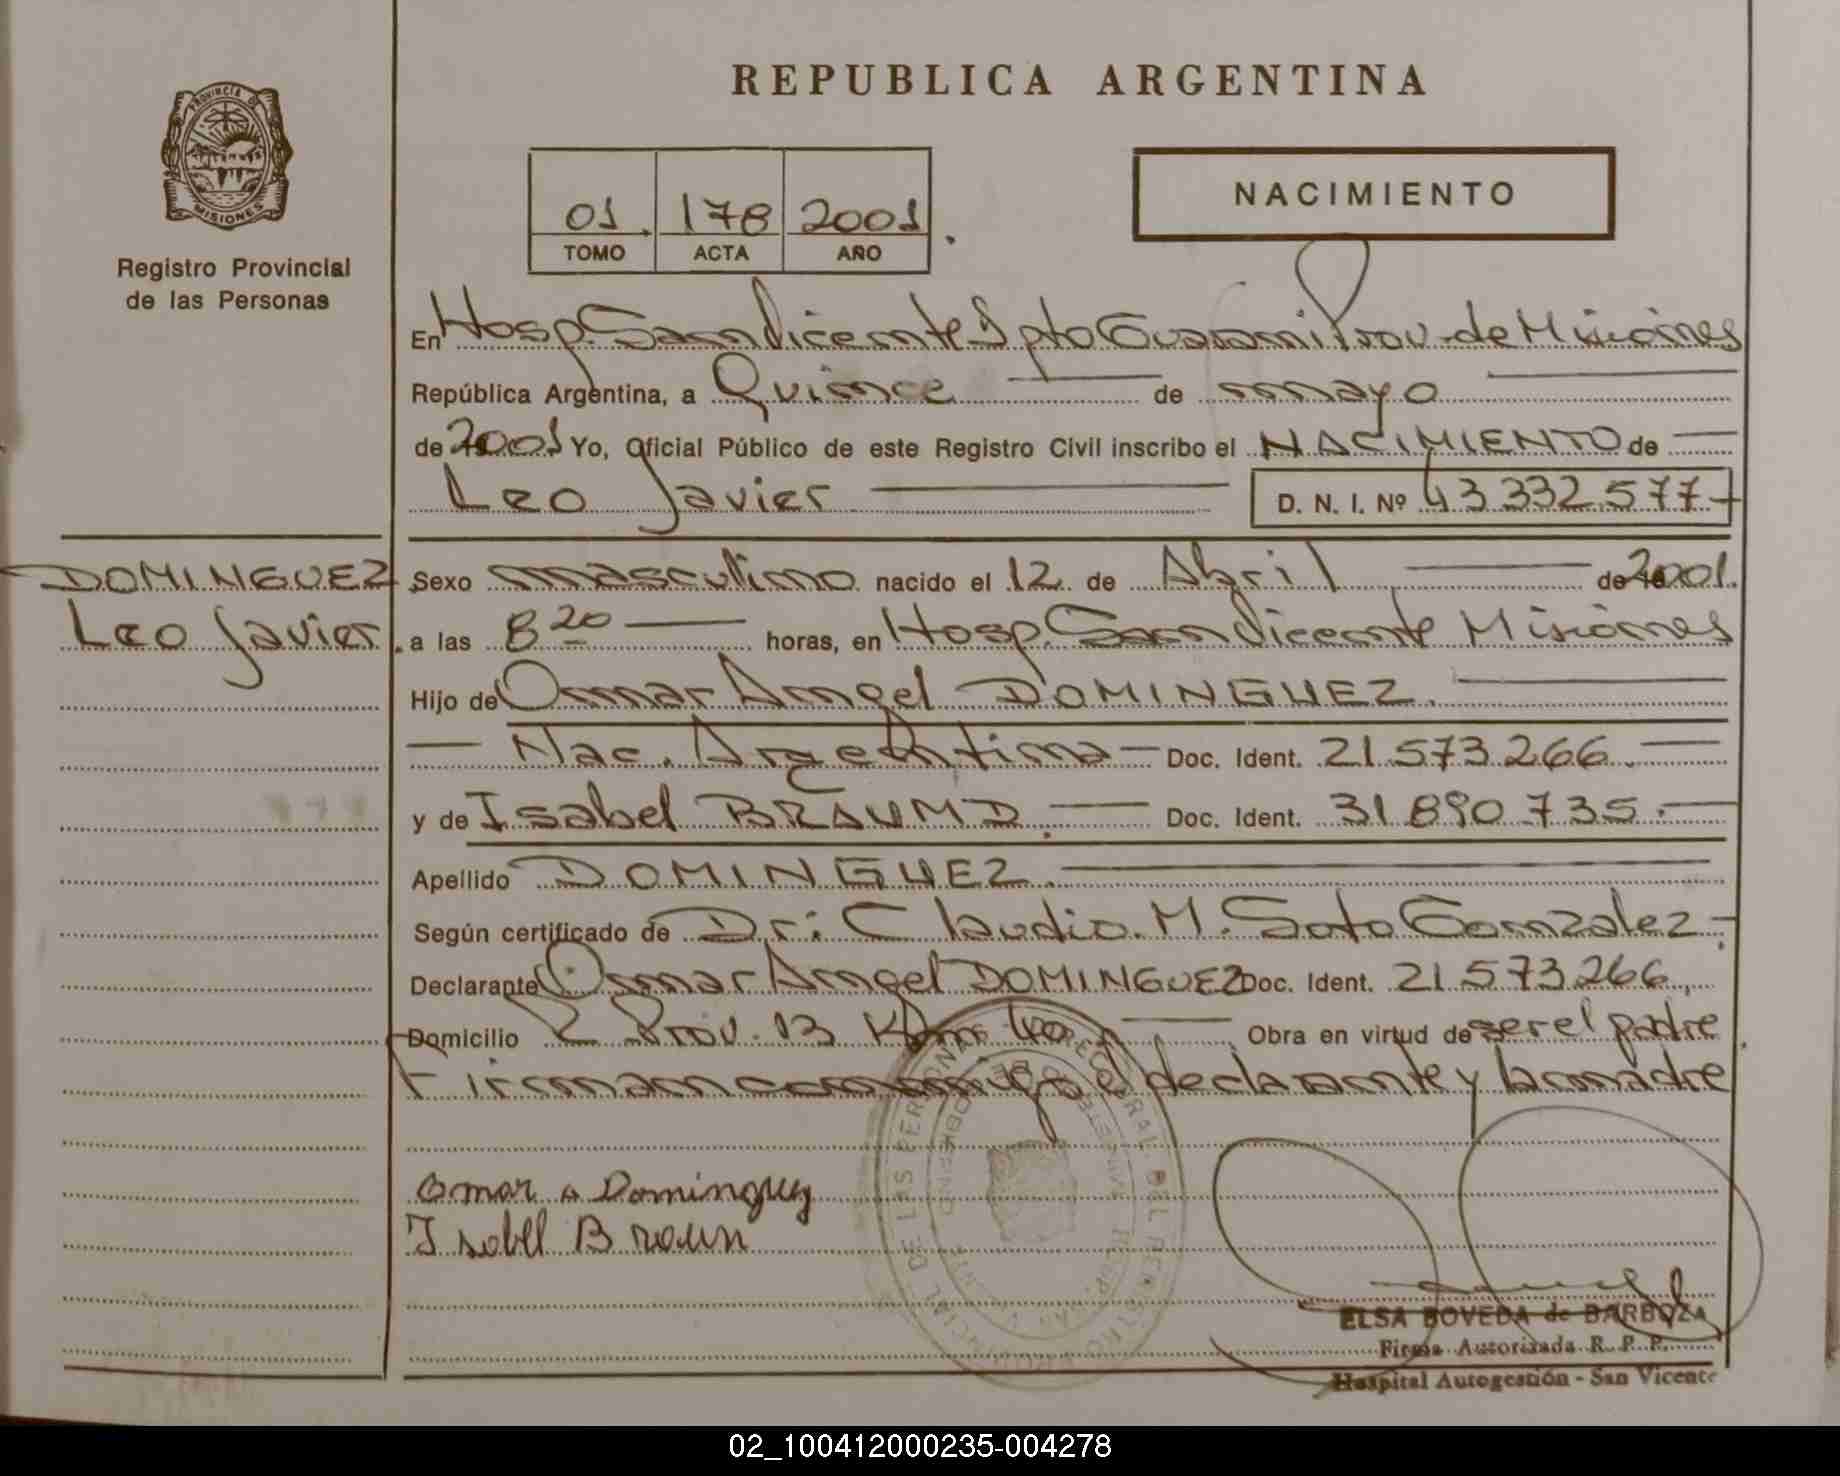 REPUBLICA ARGENTINA
PROVINCIA DE
MISIONES
Registro Provincial
de las Personas
01 178 2001
TOMO ACTA AÑO
NACIMIENTO
En Hosp. San Vicente Dpto Guarani Prov. de Misiones
República Argentina, a Quince de mayo
de 2001 Yo, Oficial Público de este Registro Civil inscribo el NACIMIENTO de
Leo Javier D. N. I. Nº 43.332.577
DOMINGUEZ
Leo Javier
Sexo masculino nacido el 12 de Abril de 2001.
a las 8 20 horas, en Hosp. San Vicente Misiones
Hijo de Omar Angel DOMINGUEZ.
Nac. Argentina Doc. Ident. 21.573.266
y de Isabel BRAUN D. Doc. Ident. 31.890.735.
Apellido DOMINGUEZ.
Según certificado de Dr: Claudio. M. Soto Gonzalez.
Declarante Omar Angel DOMINGUEZ Doc. Ident. 21.573.266
Domicilio R. Prov. 13 Km 40 Obra en virtud de ser el padre
Firman conmigo el declarante y la madre
Omar A Dominguez
Isabel Braun
ELSA BOVEDA de BARBOZA
Firma Autorizada R. P. P.
Hospital Autogestión - San Vicente
02_100412000235-004278